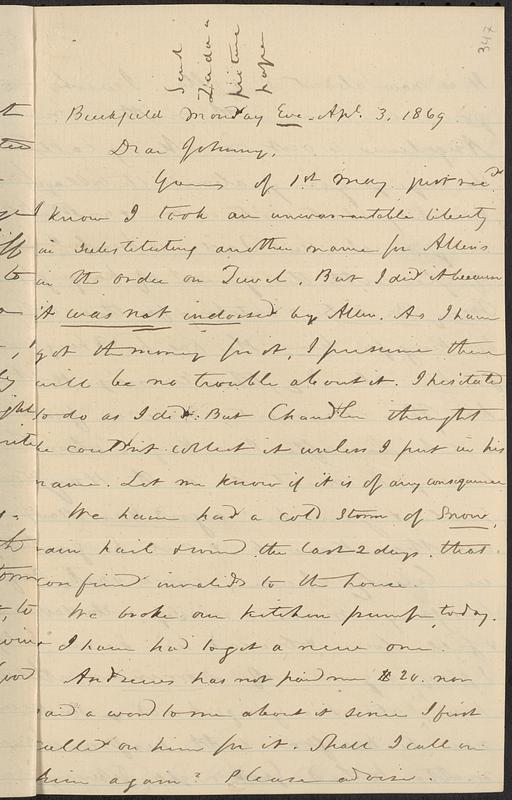 347
Send
Zadoc a
picture
paper
Buckfield Monday Eve. Apl. 3, 1869
Dear Johnny,
Yours of 1st May just rec'd
I know I took an unwarrantable liberty
in substituting another name for Allen's
in the order on Tewel. But I did it because
it was not indorsed by Allen. As I have
got the money for it, I presume there
will be no trouble about it. I hesitated
to do as I did. But Chandler thought
he couldn't collect it unless I put in his
name. Let me know if it is of any consequence
We have had a cold storm of Snow,
rain hail & wind the last 2 days, that
confined invalids to the house
We broke our kitchen pump, today.
I have had to get a new one.
Andrews has not paid me $20. nor
said a word to me about it since I first
called on him for it. Shall I call on
him again? Please advise.